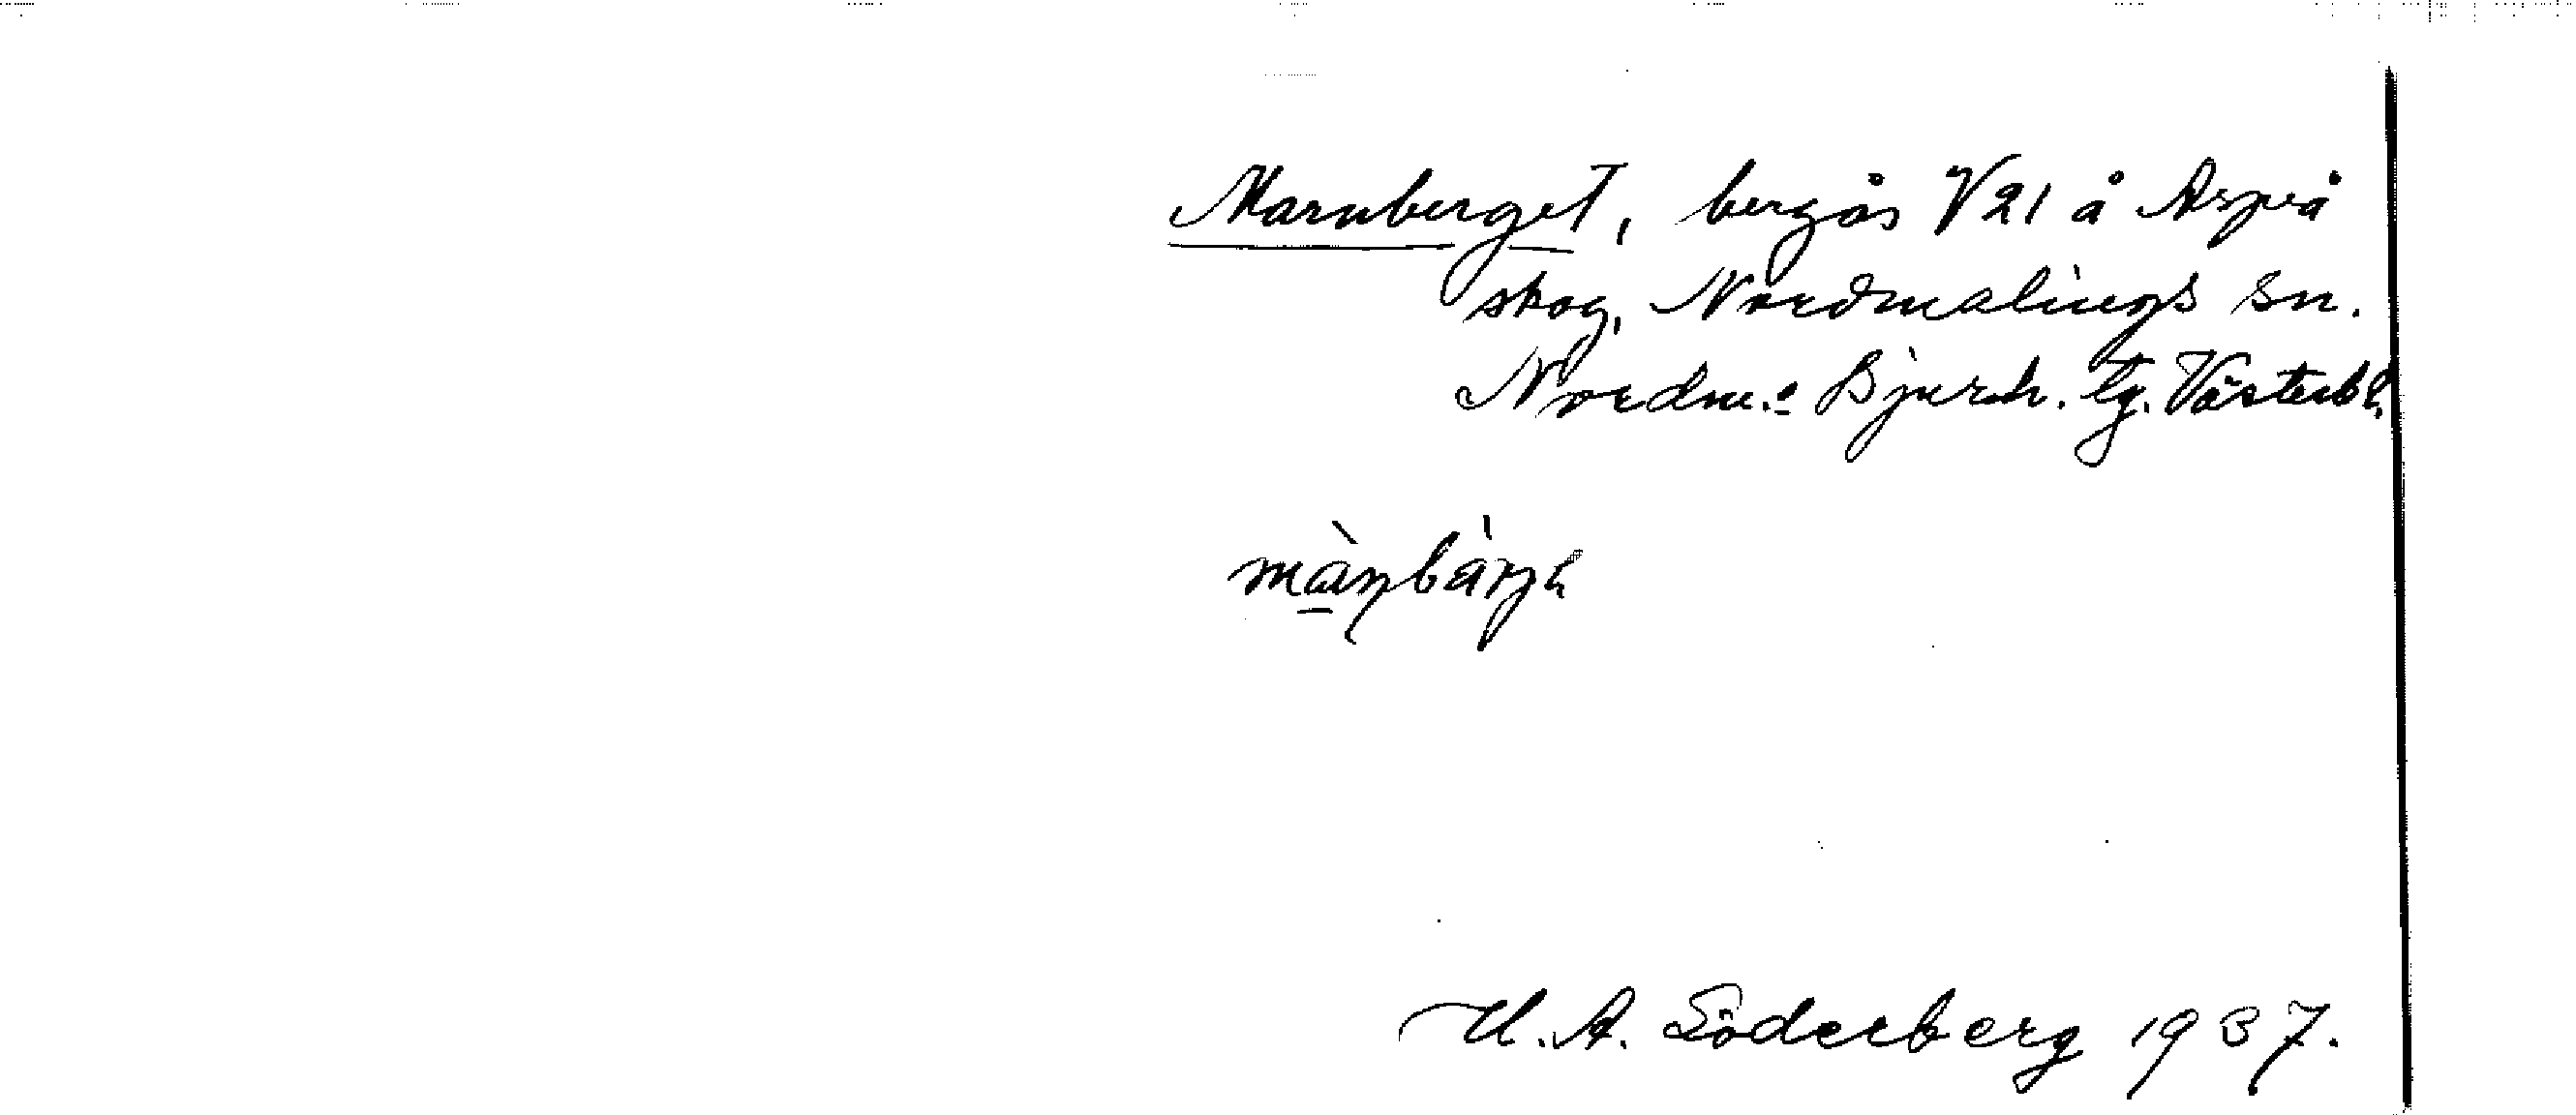 Marnberget, bergås V21 å Aspeå
skog, Nordmalings sn.
Nordm. o Bjurh. tg. Västerb l.
H. A. Söderberg 1937.